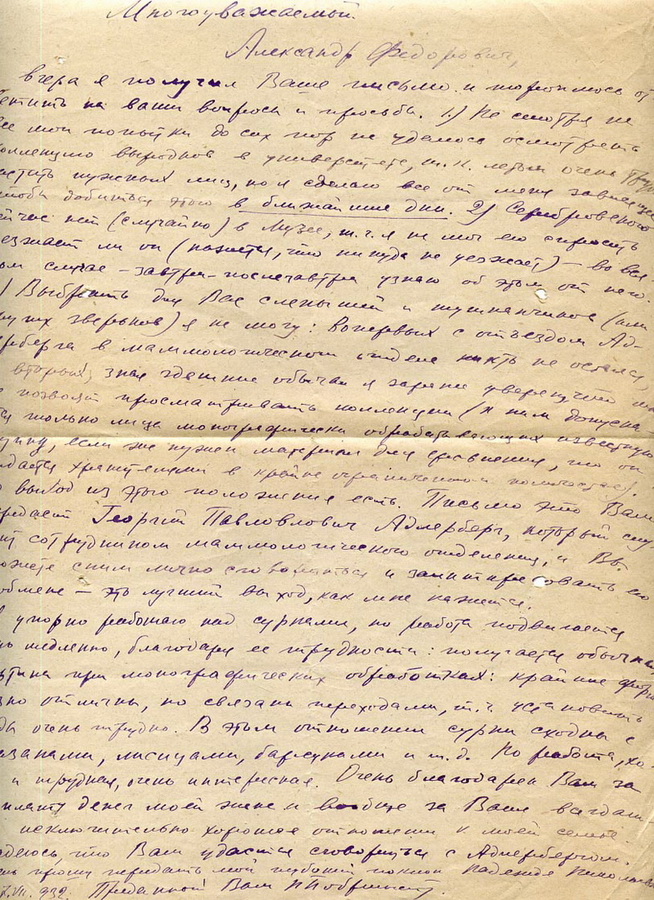 Многоуважаемый
Александр Федорович,
вчера я получил Ваше письмо и тороплюсь от
ветить на ваши вопросы и просьбы. 1) Не смотря на
все мои попытки до сих пор не удалось осмотреть
коллекцию выродков в университете, т. к. летом очень трудно
нужных лиц, но я сделаю все от меня зависящее
чтобы добиться этого в ближайшие дни. 2) Серебровского
сейчас нет (случайно) в Музее, т. ч. я не мог его спросить
езжает ли он (кажется, что никуда не уезжает) – во вся-
ком случае – завтра-послезавтра узнаю об этом от него.
) Выбрать для Вас слепышей и тушканчиков (или
других зверьков) я не могу: вопервых с отъездом Ад-
лерберга в маммологическом отделе никто не остался,
вторых, зная здешние обычаи я заранее уверен, что
позволят просматривать коллекции (к ним допуска
только лица монографически обрабатывающих известную
группу, если же нужен материал для сравнения, то он
выдается хранителями в крайне ограниченном количестве).
выход из этого положения есть. Письмо это Вам
передаст Георгий Павлович Адлерберг, который слу
жит сотрудником маммологического отделения, и Вы
можете с ним лично сговориться и заинтересовать его
обмене – это лучший выход, как мне кажется.
Я упорно работаю над сурками, но работа подвигается
медленно, благодаря ее трудности: получается обычная
картина при монографических обработках: крайние формы
отличны, но связаны переходами, т. ч. установить
очень трудно. В этом отношении сурки сходны с
лисицами, барсуками и т. д. Но работа, хо-
и трудная, очень интересная. Очень благодарен Вам за
денег моей жене и вообще за Ваше всегдаш
исключительно хорошее отношение к моей семье
надеюсь, что Вам удастся сговориться с Адлербергом.
прошу передать мой глубокий поклон Надежде Николаевне
VII. 932. Преданный Вам